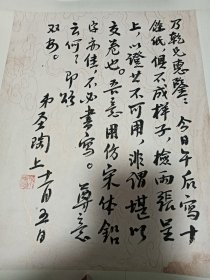 乃乾兄惠鉴：今日午后写十
余纸，俱不成样子，检两张呈
上，以证其不可用，非谓堪以
交卷也。吾意用仿宋体铅
字为佳，不必书写。尊意
云何？即颂
双安。
弟圣陶上 十一月五日